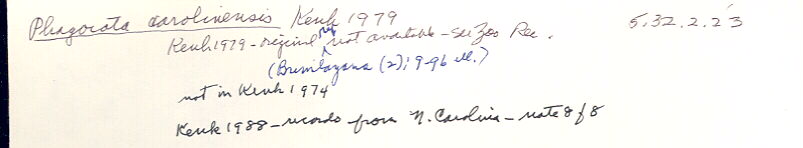 Phagocata carolinensis Kenk 1979 5.32.2.23
Kenk 1979 - original ref not available - see Zoo Rec.
(Brenesiana (2): 9-96 ill.)
not in Kenk 1974
Kenk 1988 - records from N. Carolina - note 8 of 8